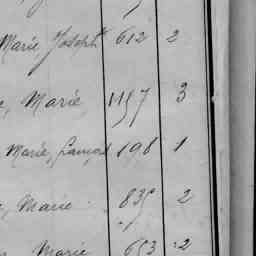 Marie, Joseph 612 2
, Marie 1157 3
Marie, François 198 1
, Marie 835 2
Marie 653 2